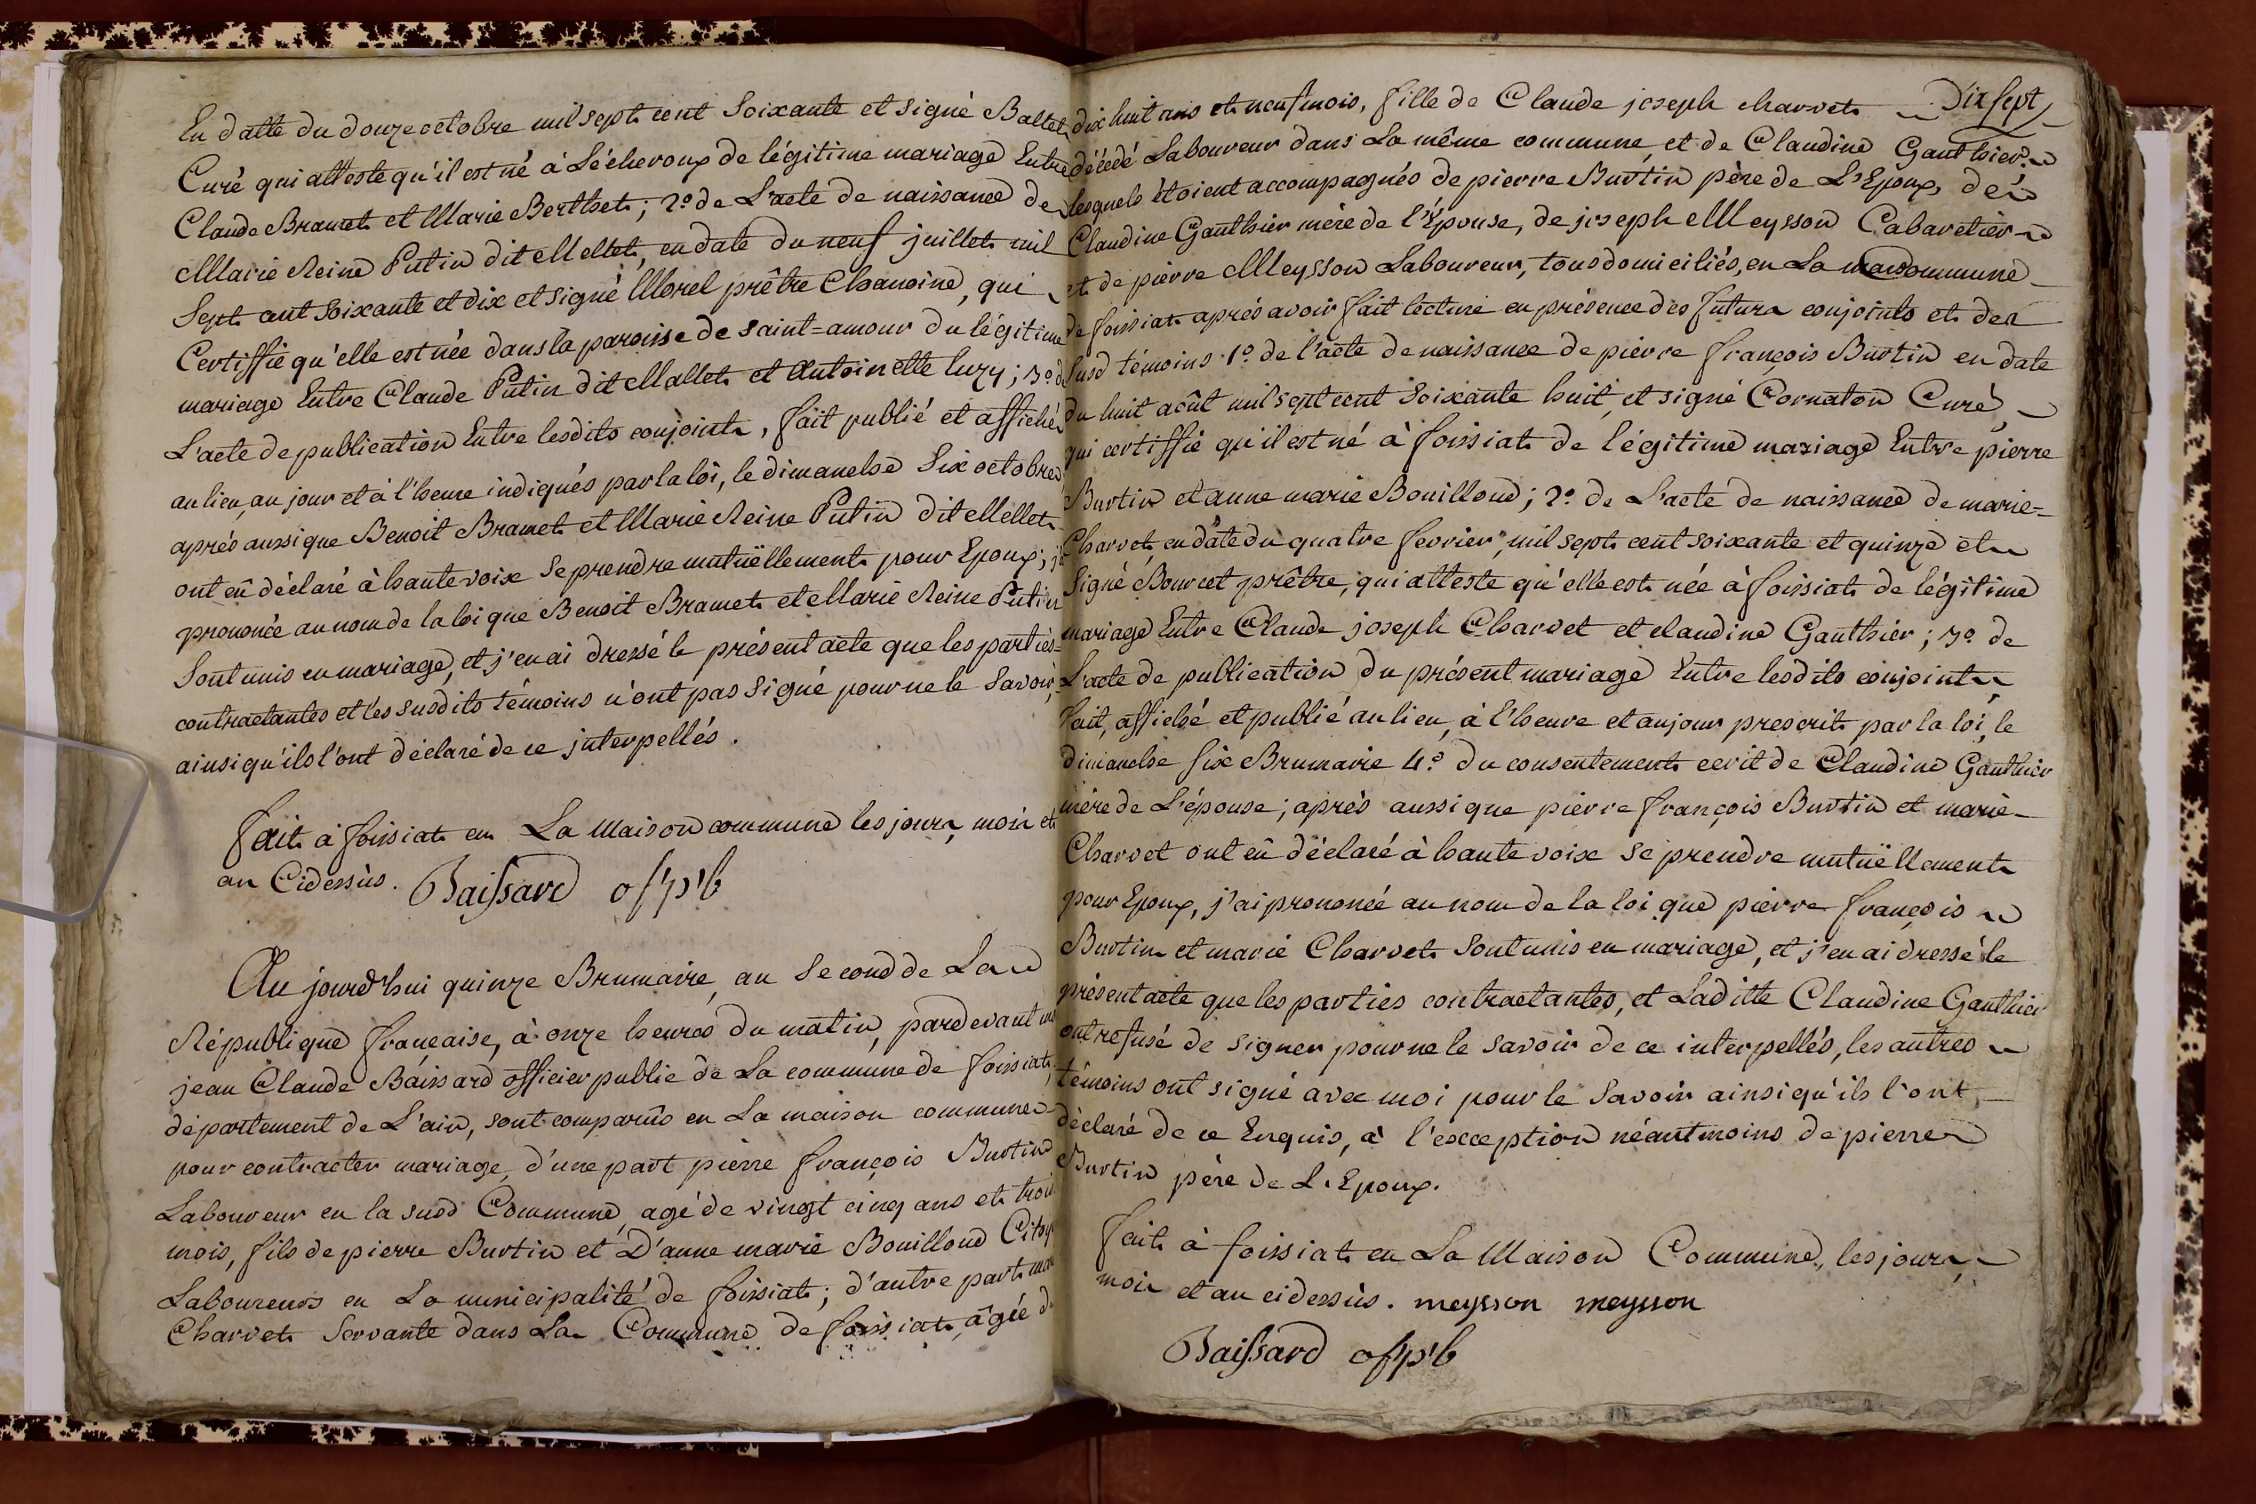 En datte du douze octobre mil sept cent Soixante et signé Baltet
Curé qui atteste qu'il est né à Lécheroux de légitime mariage Entre
Claude Bramet et Marie Berthet; 2° de L'acte de naissance de
Marie Reine Putin dit Mellet, en date du neuf juillet mil
Sept cent Soixante et dix et signé Morel prêtre Chanoine, qui
Certiffie qu'elle est née dans la paroisse de saint=amour du légitime
mariage Entre Claude Putin dit Mallet et Antoinette luzy; 3° de
L'acte de publication Entre lesdits conjoints, fait publié et affiché
au lieu, au jour et à l'heure indiqués par la loi, le dimanche Six octobre
après aussi que Benoit Bramet et Marie Reine Putin dit Mellet
ont eû déclaré à haute voix se prendre mutuëllement pour Epoux; j'
prononcé au nom de la loi que Benoit Bramet et Marie Reine Putin
Sont unis en mariage, et j'en ai dressé le présent acte que les parties=
contractantes et les susdits témoins n'ont pas signé pour ne le Savoir,
ainsi qu'ils l'ont déclaré de ce interpellés.
fait à foissiat en La Maison commune les jour, mois et
an Cidessus. Baissard of p'b
Aujourd'hui quinze Brumaire, an Second de La
République française, à onze heures du matin, pardevant
jean Claude Baissard officier public de La commune de foissiat,
département de L'ain, sont comparûs en La maison commune
pour contracter mariage, d'une part pierre françois Burtin
Laboureur en la susd Commune, agé de vingt cinq ans et trois
mois, fils de pierre Burtin et D'anne marie Bouilloud
Laboureurs en La municipalité de foissiat; d'autre part
Charvet Servante dans La Commune de foissiat, âgée de
Dix sept
dix huit ans et neuf mois, fille de Claude joseph charvet
décédé Laboureur dans La même commune, et de Claudine Gauthier
lesquels étoient accompagnés de pierre Burtin père de L'Epoux, de
Claudine Gauthier mère de l'Epouse, de joseph Meysson Cabaretier
et de pierre Meysson Laboureur, tous domiciliés, en La Commune
de foissiat après avoir fait lecture en présence des futurs conjoints et des
susd témoins 1° de l'acte de naissance de pierre françois Burtin en date
du huit août mil sept cent Soixante huit, et signé Cornaton Curé,
qui certiffie qu'il est né à foissiat de légitime mariage Entre pierre
Burtin et anne marie Bouilloud; 2° de L'acte de naissance de marie=
Charvet, en date du quatre fevrier, mil sept cent soixante et quinze et
Signé Bourcet prêtre, qui atteste qu'elle est née à foissiat de légitime
mariage Entre Claude joseph Charvet et claudine Gauthier; 3° de
L'acte de publication du présent mariage Entre lesdits conjoints
fait, affiché et publié au lieu, à l'heure et au jour prescrit par la loi, le
dimanche six Brumaire 4° du consentement ecrit de Claudine Gauthier
mère de L'épouse; après aussi que pierre françois Burtin et marie
Charvet ont eû déclaré à haute voix se prendre mutuëllement
pour Epoux, j'ai prononcé au nom de la loi que pierre françois
Burtin et marie Charvet Sont unis en mariage, et j'en ai dressé le
présent acte que les parties contractantes, et Laditte Claudine Gauthier
ont refusé de signer pour ne le savoir de ce interpellés, les autres
témoins ont signé avec moi pour le Savoir ainsi qu'ils l'ont
déclaré de ce Enquis, à l'exception néantmoins de pierre
Burtin père de L'Epoux.
fait à foissiat en La Maison Commune, les jour,
mois et an cidessus. meysson meysson
Baissard of p'b